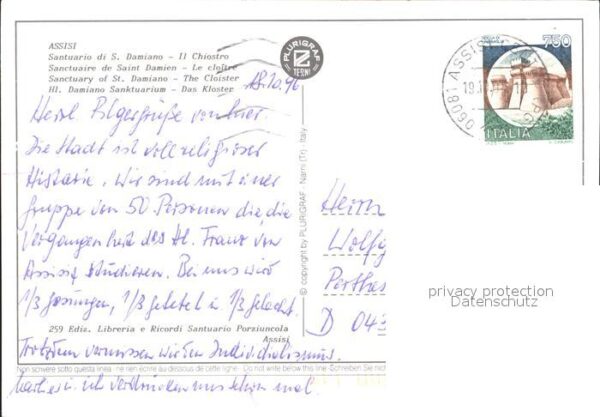 ASSISI
Santuario di S. Damiano - Il Chiostro
Sanctuaire de Saint Damien - Le cloître
Sanctuary of St. Damiano - The Cloister
Hl. Damiano Sanktuarium - Das Kloster
PLURIGRAF
TERNI
750
ITALIA
06081 ASSISI
18.10.96
Herzl. Pilgergrüße von hier.
Die Stadt ist voll religiöser
Historie. Wir sind mit einer
Gruppe von 50 Personen die die
Vergangenheit des Hl. Franz von
Assisi studieren. Bei uns wird
1/3 gesungen, 1/3 gebetet u 1/3 gelacht.
© copyright by PLURIGRAF - Narni (Tr) - Italy
Herrn
Wolfg
Perthes
D 043
privacy protection
Datenschutz
259 Ediz. Libreria e Ricordi Santuario Porziuncola
Assisi
Trotzdem vermissen wir den Individualismus.
Non scrivere sotto questa linea - ne rien écrire au-dessous de cette ligne - Do not write below this line - Bitte nich
u. ich verdrücken uns schon mal.